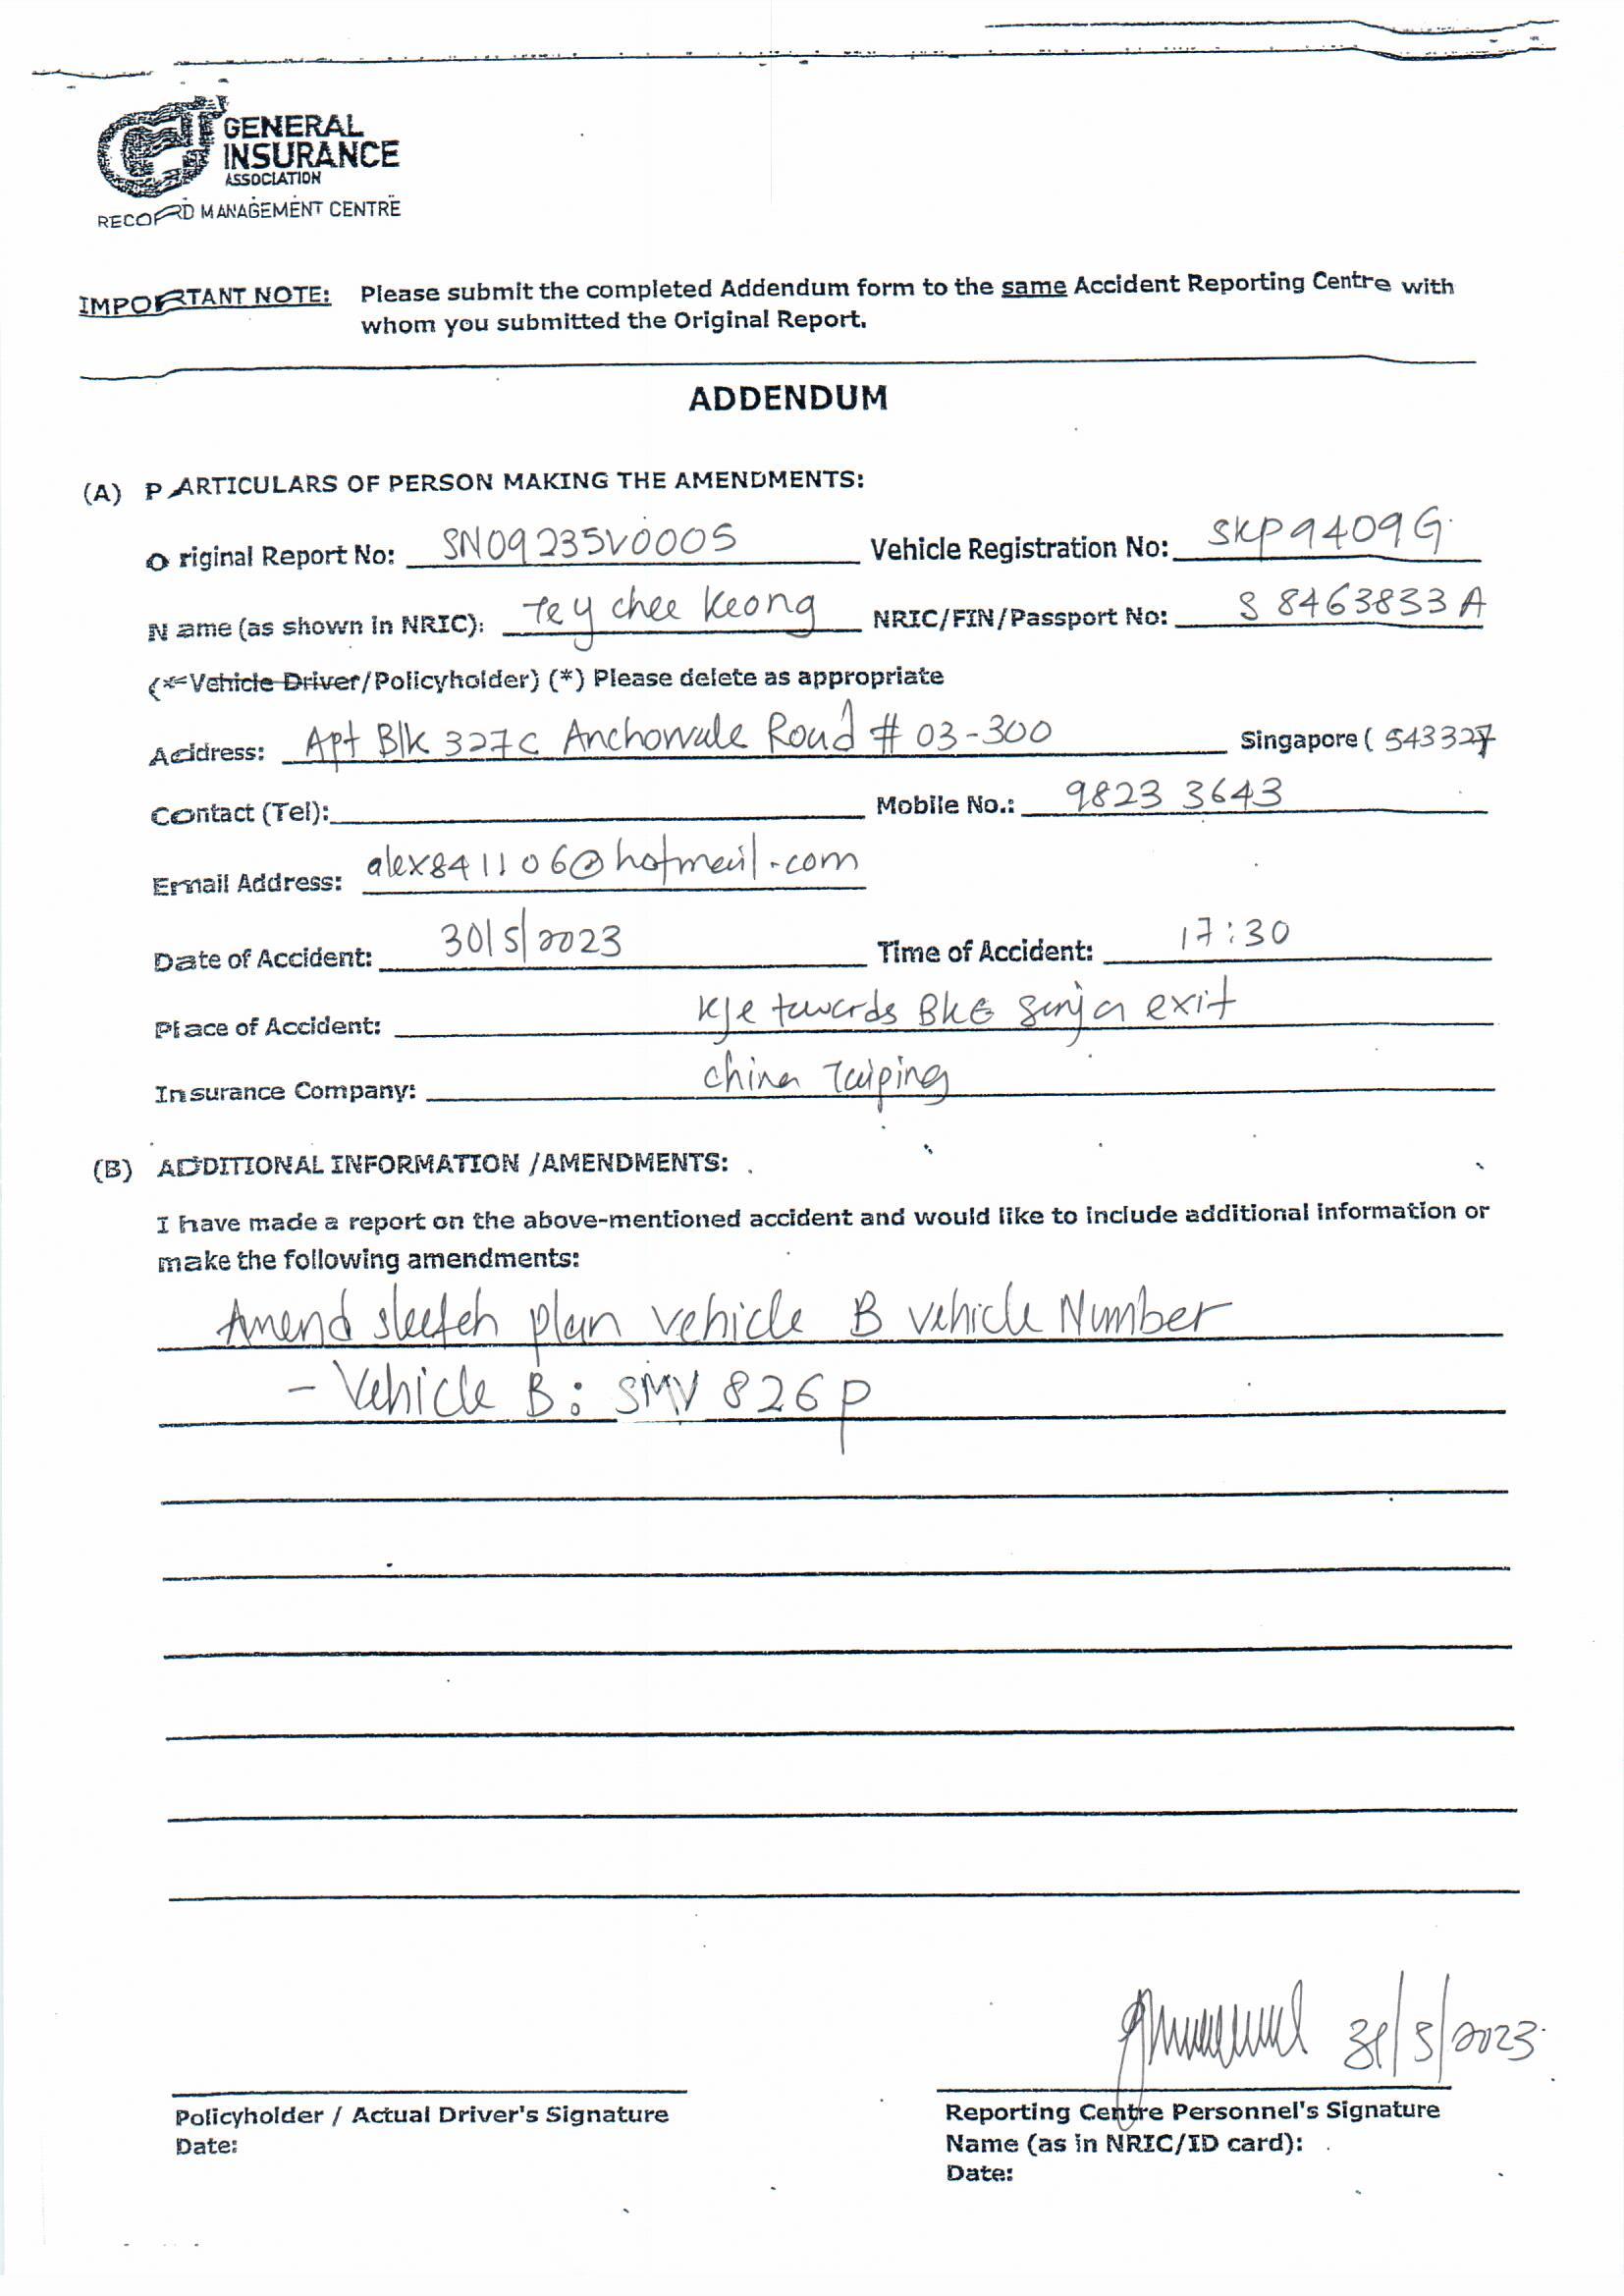 GENERAL
INSURANCE
ASSOCIATION
RECORD MANAGEMENT CENTRE
IMPORTANT NOTE: Please submit the completed Addendum form to the same Accident Reporting Centre with
whom you submitted the Original Report.
ADDENDUM
(A) PARTICULARS OF PERSON MAKING THE AMENDMENTS:
Original Report No: SN09235V0005 Vehicle Registration No: SKP9409G
Name (as shown in NRIC): Tey chee Keong NRIC/FIN/Passport No: S8463833A
(*Vehicle Driver/Policyholder) (*) Please delete as appropriate
Address: Apt Blk 327C Anchorvale Road #03-300 Singapore (543327
Contact (Tel): Mobile No.: 9823 3643
Email Address: alex841106@hotmail.com
Date of Accident: 30/5/2023 Time of Accident: 17:30
Place of Accident: Kje towards BKE Senja exit
Insurance Company: China Taiping
(B) ADDITIONAL INFORMATION /AMENDMENTS:
I have made a report on the above-mentioned accident and would like to include additional information or
make the following amendments:
Amend sketch plan vehicle B vehicle Number
- Vehicle B: SMV 826P
31/5/2023
Policyholder / Actual Driver's Signature Reporting Centre Personnel's Signature
Date: Name (as in NRIC/ID card):
Date: